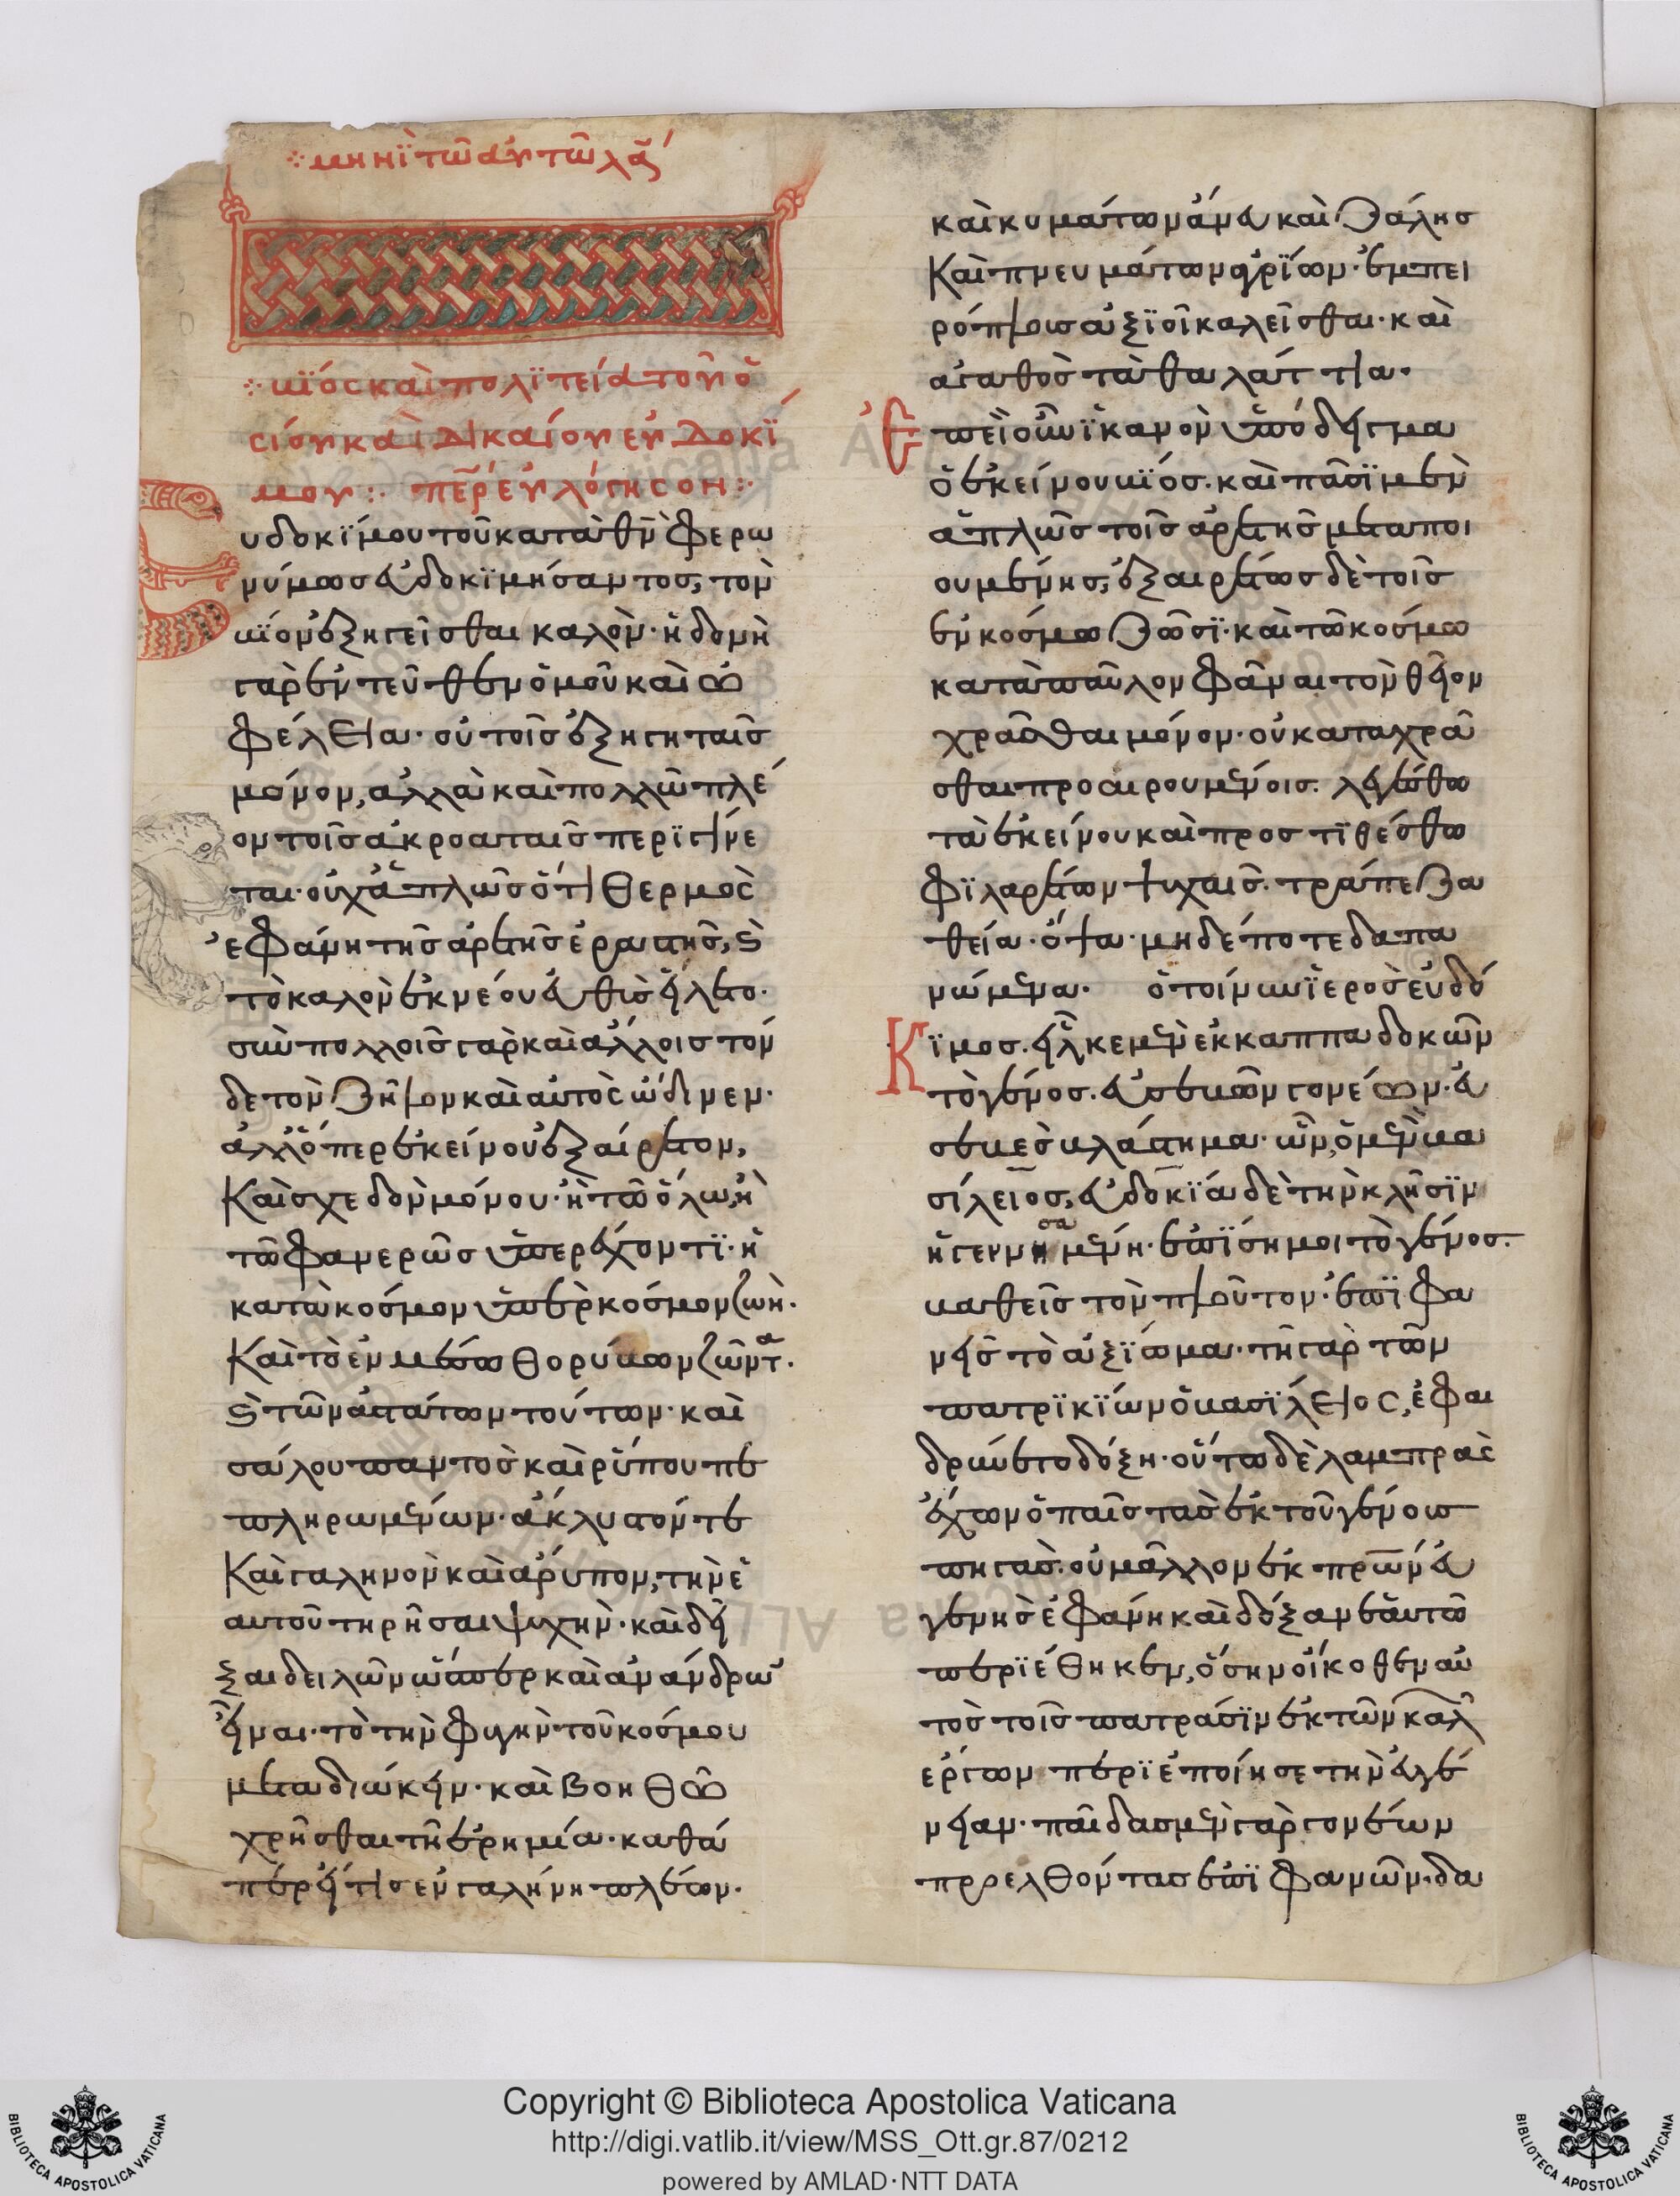 μηνῒ τῶ αυτῶ λα
βίος καὶ πολϊτεία τοῦ ὁ
σίου καὶ δικαίου εὐδοκί
μου: περ εὐλόγησον:
υδοκΐμου τοῦ κατὰ θν φερω
νύμως εὐδοκϊμήσαντος, τὸν
βίον ἐξηγεῖσθαι καλόν· ἡδονὴ
γὰρ ἐντεῦθεν ὁμοῦ καὶ ὠ
φέλεια· οὐ τοῖς ἐξηγηταῖς
μόνον, ἀλλὰ καὶ πολλῶ πλέ
ον τοῖς ἀκροαταῖς περϊγίνε
ται· οὐχ ἁπλῶς ὅτι θερμὸς
ἐφάνη τῆς ἀρετῆς ἐραστῆς, ϗ
τὸ καλὸν ἐκ νέου εὐθὺς εἵλετο·
σὺν πολλοῖς γὰρ καὶ ἄλλοις τόν
δε τὸν ζῆλον καὶ αὐτὸς ὤδινεν·
ἀλλ' ὅπερ ἐκείνου ἐξαίρετον,
καὶ σχεδὸν μόνου· ἢ τῶ ὅλω, ἢ
τῶ φανερῶς ὑπερέχοντϊ· ἡ
κατὰ κόσμον ὑπὲρ κόσμον ζωή·
καὶ τὸ ἐν μέσω θορύβων ζῶντα·
ϗ τῶν ἀπάτων τούτων· καὶ
σάλου παντὸς καὶ ῥύπου πε
πληρωμένων· ἄκλυστόν τε
καὶ γαληνὸν καὶ ἄρυπον, τὴν ἑ
αυτοῦ τηρῆσαι ψυχήν· καὶ δεῖ
ξαι δειλῶν ὥσπερ καὶ ἀνάνδρω
εἶναι· τὸ τὴν φυγὴν τοῦ κόσμου
μεταδιώκειν· καὶ βοηθῶ
χρῆσθαι τῆ ἐρημία· καθά
περ εἴ τις ἐν γαλήνη πλέων·
καὶ κυμάτων ἄνευ καὶ ζάλης
καὶ πνευμάτων ἀγρΐων· ἐμπει
ρόπλους ἀξϊοῖ καλεῖσθαι· καὶ
ἀγαθὸς τὰ θαλάττια·
ἐπεὶ οὖν ϊκανὸν ὑπόδειγμα
ὁ ἐκείνου βίος· καὶ πᾶσϊ μὲν
ἁπλῶς τοῖς ἀρετῆς μεταποι
ουμένης, ἐξαιρέτως δὲ τοῖς
ἐν κόσμω ζῶσϊ· καὶ τῶ κόσμω
κατὰ παῦλον φάναι τὸν θεῖον
χρᾶσθαι μόνον· οὐ καταχρᾶ
σθαι προαιρουμένοις· λεγέσθω
τὰ ἐκείνου καὶ προστϊθέσθω
φϊλαρέτων ψυχαῖς· τράπεζα
θεία· ὄψα· μηδέποτε δαπα
νώμενα· ὁ τοίνυν ϊερὸς εὐδό
κϊμος· εἷλκε μὲν ἐκ καππαδοκῶν
τὸ γένος· εὐσεβῶν γονέων· εὐ
σεβὲς βλάστημα· ὧν, ὁ μὲν βα
σίλειος, εὐδοκϊα δὲ τὴν κλῆσϊν
ἡ γειναμένη· ἐπϊσημοι τὸ γένος·
βαθεῖς τὸν πλοῦτον· ἐπϊφα
νεῖς τὸ ἀξΐωμα· τῆ γὰρ τῶν
πατρϊκΐων ὁ βασϊλειος, ἐφαι
δρύνετο δόξη· οὕτω δὲ λαμπρὰς
ἔχων ὁ παῖς τὰς ἐκ τοῦ γένους
πηγάς· οὐ μᾶλλον ἐκ πρων εὐ
γενὴς ἐφάνη καὶ δόξαν ἑαυτῶ
περϊέθηκεν, ὅσην οἴκοθεν αὐ
τὸς τοῖς πατράσϊν ἐκ τῶν καλ
ἔργων περϊεποίησε τὴν εὐγέ
νειαν· παῖδας μὲν γὰρ γονέων
προελθόντας ἐπϊφανῶν· δα
Copyright © Biblioteca Apostolica Vaticana
http://digi.vatlib.it/view/MSS_Ott.gr.87/0212
powered by AMLAD·NTT DATA
BIBLIOTECA APOSTOLICA VATICANA
BIBLIOTECA APOSTOLICA VATICANA